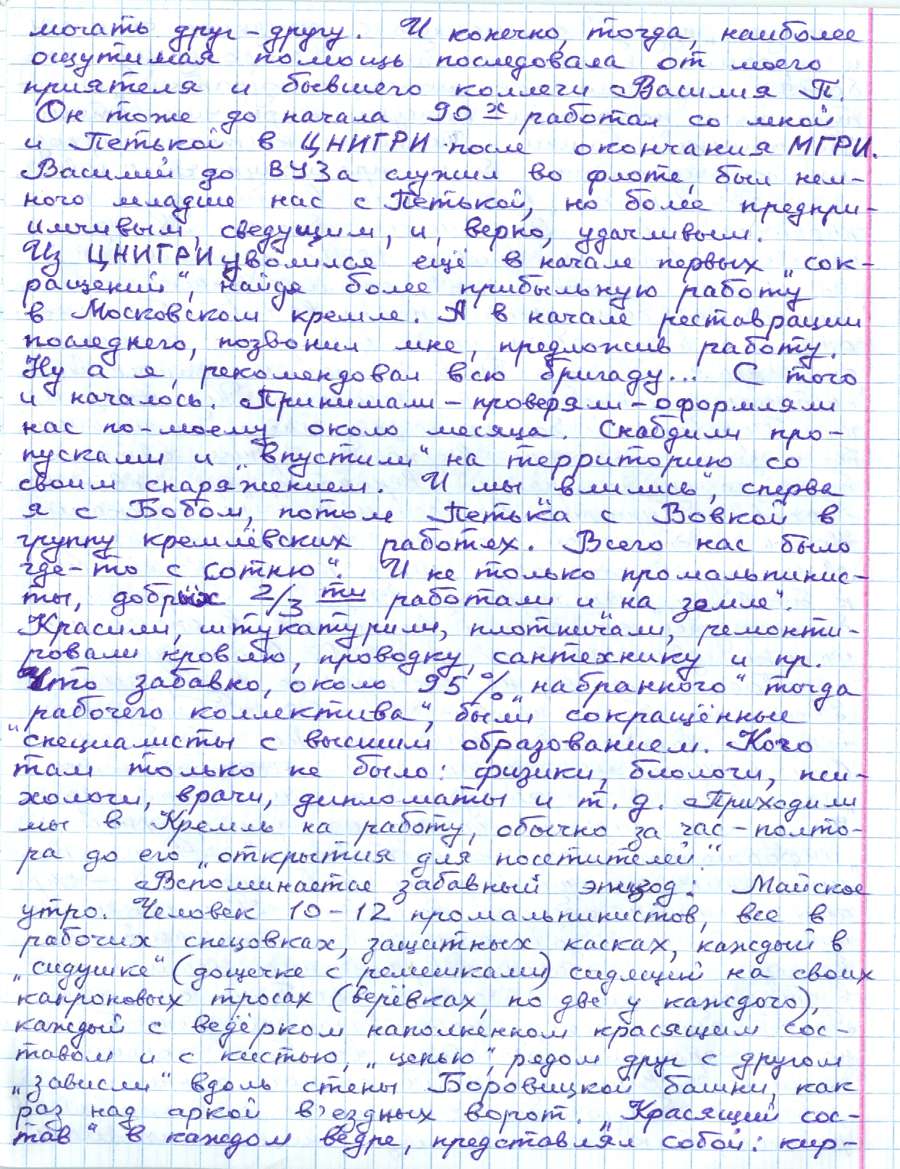 могать друг-другу. И конечно, тогда, наиболее
ощутимая помощь последовала от моего
приятеля и бывшего коллеги Василия П.
Он тоже до начала 90х работал со мной
и Петькой в ЦНИГРИ после окончания МГРИ.
Василий до ВУЗа служил во флоте, был нем-
ного младше нас с Петькой, но более предпри-
имчивым, сведущим, и, верно, удачливым.
Из ЦНИГРИ уволился ещё в начале первых „сок-
ращений“, найдя более прибыльную работу
в Московском кремле. А в начале реставрации
последнего, позвонил мне, предложив работу.
Ну а я, рекомендовал всю бригаду... С того
и началось. Принимали-проверяли-оформляли
нас по-моему около месяца. Снабдили про-
пусками и „впустили“ на территорию со
своим снаряжением. И мы „влились“, сперва
я с Бобом, потом Петька с Вовкой в
группу кремлёвских работяг. Всего нас было
где-то с „сотню“. И не только промальпинис-
ты, добрых 2/3 ти работали и „на земле“.
Красили, штукатурили, плотничали, ремонти-
ровали кровлю, проводку, сантехнику и пр.
Что забавно, около 95% „набранного“ тогда
„рабочего коллектива“, были сокращённые
специалисты с высшим образованием. Кого
там только не было: физики, биологи, пси-
хологи, врачи, дипломаты и т.д. Приходили
мы в Кремль на работу, обычно за час-полто-
ра до его „открытия для посетителей“
Вспоминается забавный эпизод: Майское
утро. Человек 10-12 промальпинистов, все в
рабочих спецовках, защитных касках, каждый в
„сидушке“ (дощечке с ремешками) сидящий на своих
капроновых тросах (верёвках, по две у каждого),
каждый с ведёрком наполненном красящим сос-
тавом и с кистью, „цепью“, рядом друг с другом
„зависли“ вдоль стены Боровицкой башни, как
раз над аркой въездных ворот. „Красящий сос-
тав“ в каждом ведре, представлял собой: кир-